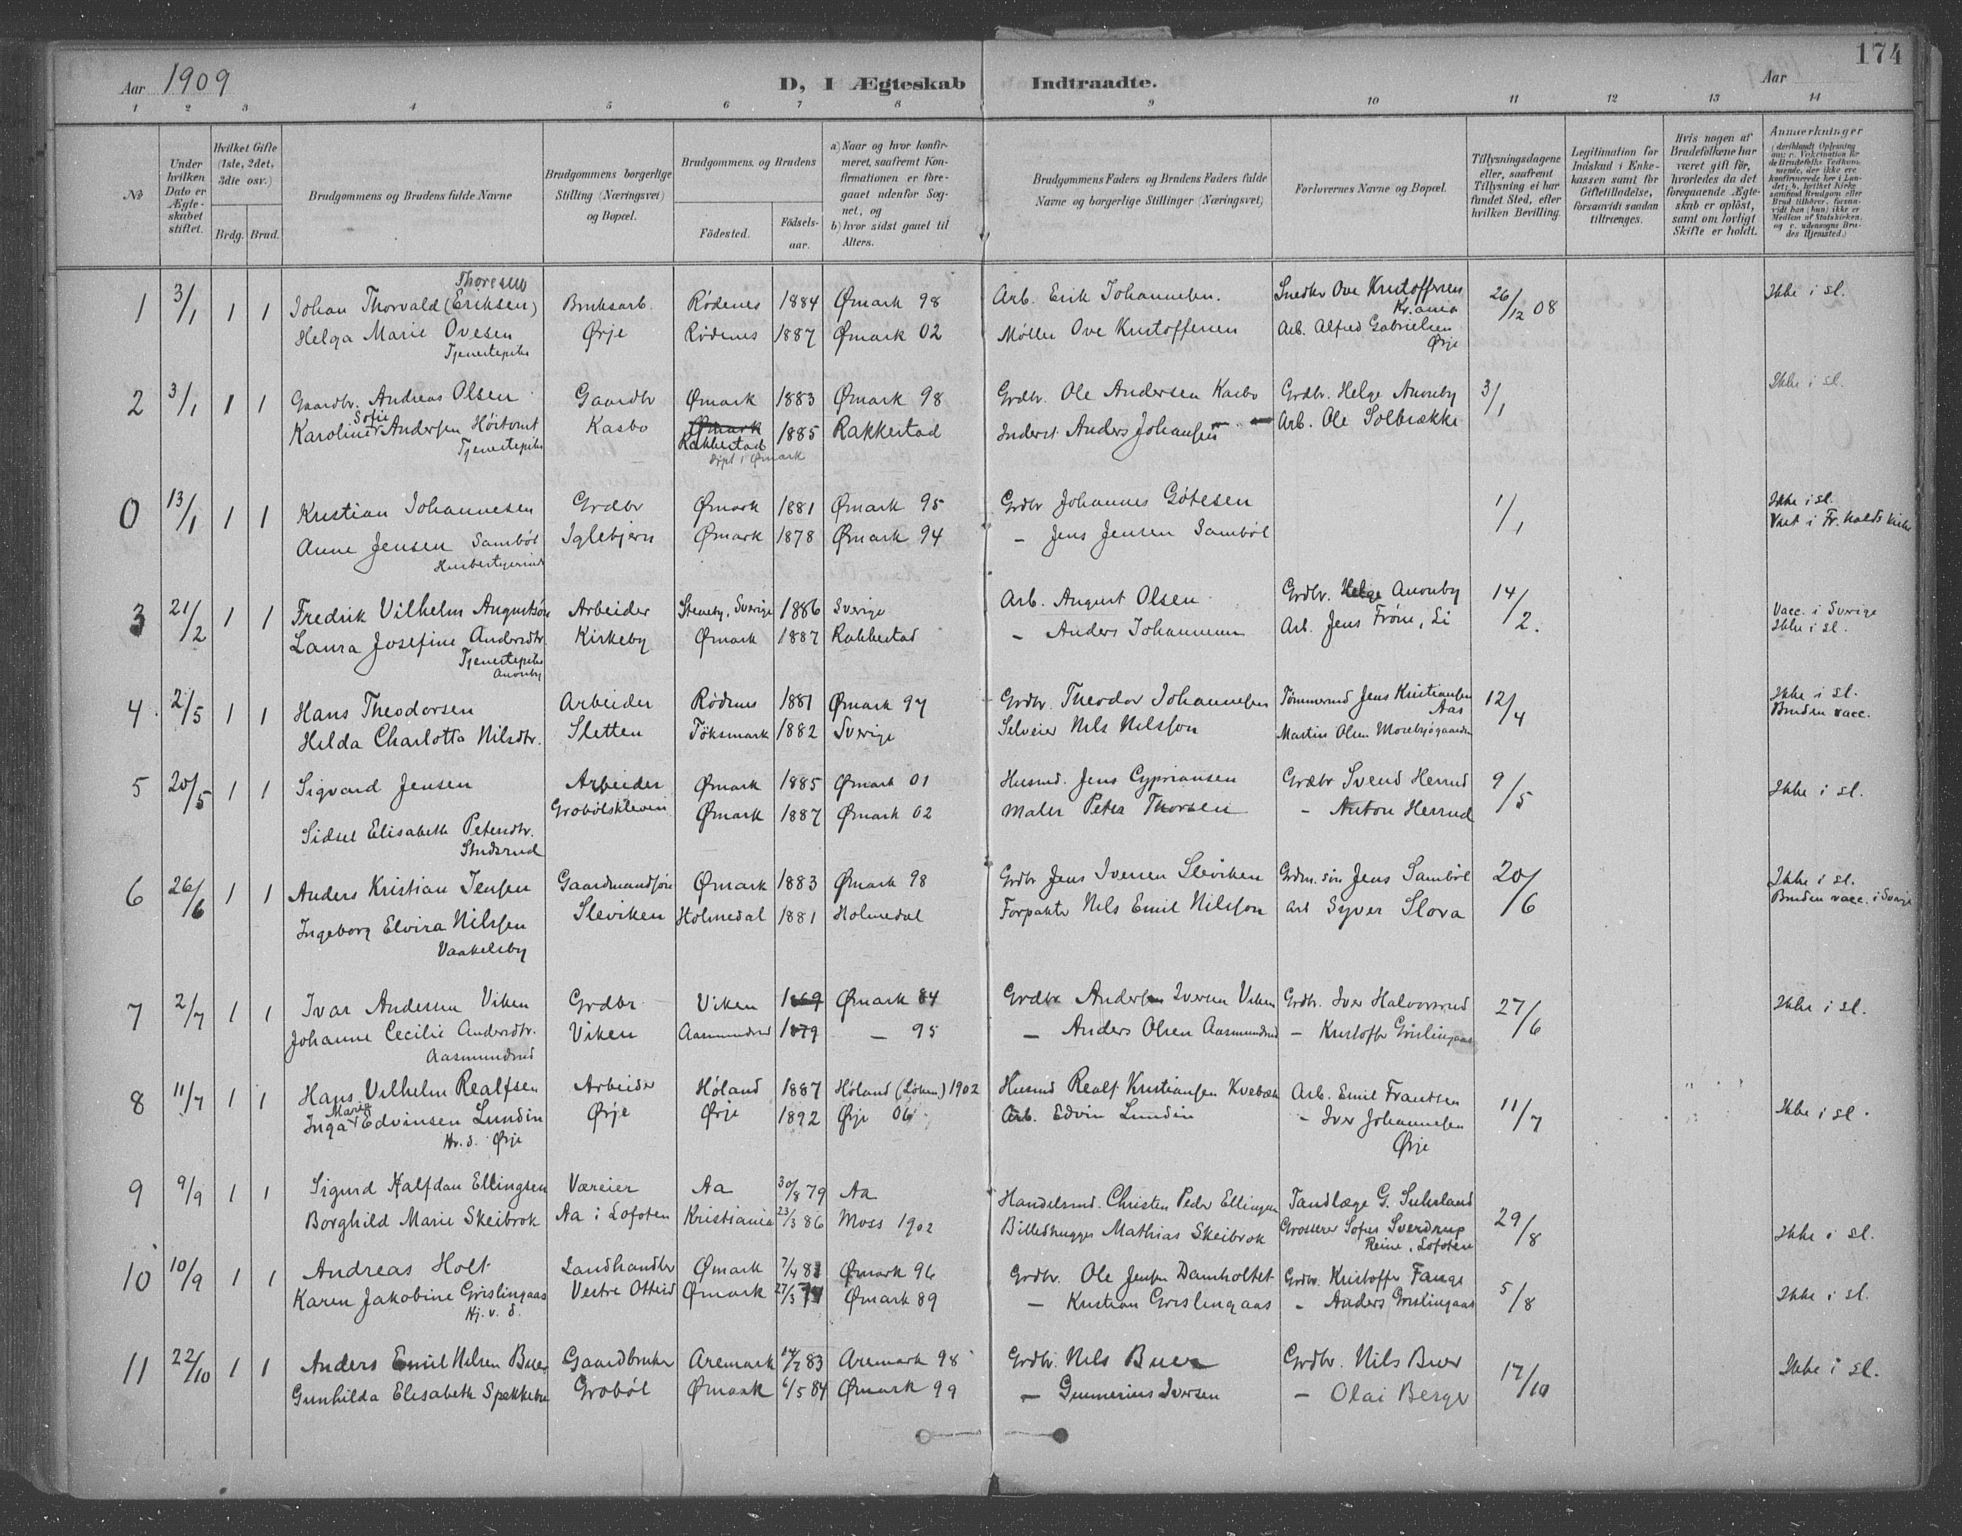 174
Aar 1909
D, I Ægteskab Indtraadte.
Aar
1 2 3 4 5 6 7 8 9 10 11 12 13 14
No
Under hvilken Dato er Ægteskabet stiftet.
Hvilket Gifte (1ste, 2det, 3die osv.)
Brdg. Brud.
Brudgommens og Brudens fulde Navne
Brudgommens borgerlige Stilling (Næringsvei) og Bopæl.
Brudgommens og Brudens
Fødested. Fødsels-aar.
a) Naar og hvor konfirmeret, saafremt Konfirmationen er foregaaet udenfor Sognet, og
b) hvor sidst gaaet til Alters.
Brudgommens Faders og Brudens Faders fulde Navne og borgerlige Stillinger (Næringsvei)
Forlovernes Navne og Bopæl.
Tillysningsdagene eller, saafremt Tillysning ei har fundet Sted, efter hvilken Bevilling.
Legitimation for Indskud i Enkekassen samt for Giftetilladelse, forsaavidt saadan tiltrænges.
Hvis nogen af Brudefolkene har været gift før, hvorledes da det foregaaende Ægteskab er opløst, samt om lovligt Skifte er holdt.
Anmærkninger
1 3/1 1 1 Johan Thorvald (Eriksen) Thoresen Bruksarb. Rødenes 1884 Ømark 98 Arb. Erik Johannesen. Snedker Ove Kristoffersen Kr.ania 26/12 08 Ikke i sl.
Helga Marie Ovesen Tjenestepike Ørje Rødenes 1887 Ømark 02 Møller Ove Kristoffersen Arb. Alfred Gabrielsen Ørje
2 3/1 1 1 Gaardbr. Andreas Olsen Gaardbr Ømark 1883 Ømark 98 Grdbr. Ole Andersen Kasbo Grdbr. Helge Anonby 3/1 Ikke i sl.
Karoline Sofie Andersen Høitomt Tjenestepike Kasbo Ømark Rakkestad døpt i Ømark 1885 Rakkestad Inderst Anders Johansen Arb. Ole Solbrække
0 13/1 1 1 Kristian Johannesen Grdbr Ømark 1881 Ømark 95 Grdbr Johannes Gøtesen 1/1 Ikke i sl.
Viet i Fr.halds kirke
Anne Jensen Sambøl Husbestyrerinde Iglebjern Ømark 1878 Ømark 94 – Jens Jensen Sambøl
3 21/2 1 1 Fredrik Vilhelm Augustsøn Arbeider Steneby, Sverige 1886 Sverige Arb. August Olsen Grdbr. Helge Anonby 14/2. Vacc. i Sverige
Ikke i sl.
Laura Josefine Andersdtr. Tjenestepike Anonby Kirkeby Ømark 1887 Rakkestad – Anders Johannesen Arb. Jens Frøne, Li
4 2/5 1 1 Hans Theodorsen Arbeider Rødenes 1881 Ømark 97 Grdbr. Theodor Johannesen Tømmermd Jens Kristiansen Aas 12/4 Ikke i sl.
Bruden vacc.
Hilda Charlotta Nilsdtr. Sletten Töksmark 1882 Sverige Selveier Nils Nilsson Martin Olsen
5 20/5 1 1 Sigvard Jensen Arbeider Ømark 1885 Ømark 01 Husmd. Jens Cypriansen Grdbr Svend Herrud 9/5 Ikke i sl.
Sidsel Elisabeth Petersdtr. Studsrud Grobølskleven Ømark 1887 Ømark 02 Maler Peter Thorsen – Anton Herrud
6 26/6 1 1 Anders Kristian Jensen Gaardmandssøn Ømark 1883 Ømark 98 Grdbr Jens Iversen Sleviken Grdm. søn Jens Sambøl 20/6 Ikke i sl.
Bruden vacc. i Sverige
Ingeborg Elvira Nilssen Vaakelsby Sleviken Holmedal 1881 Holmedal Forpakter Nils Emil Nilsson Arb Syver Slora
7 2/7 1 1 Ivar Andersen Viken Grdbr Viken 1869 Ømark 84 Grdbr Anders Iversen Viken Grdbr. Iver Halvorsrud 27/6 Ikke i sl.
Johanne Cecilie Andersdtr. Aasmundrud Viken Aasmundrud 1879 – 95 – Anders Olsen Aasmundrud – Kristoffer Grislingaas
8 11/7 1 1 Hans Vilhelm Realfsen Arbeider Høland 1887 Høland (Løken) 1902 Husmd Realf Kristiansen Kvebæk Arb. Emil Frantsen 11/7 Ikke i sl.
Inga Marie Edvinsen Lundin Hv. d. Ørje Ørje Ørje 1892 Ørje 06 Arb. Edvin Lundin – Iver Johannesen Ørje
9 9/9 1 1 Sigurd Halfdan Ellingsen Væreier Aa 30/8 79 Aa Handelsmd. Christen Peder Ellingsen Tandlæge G. Suhrland 29/8 Ikke i sl.
Borghild Marie Skeibrok Aa i Lofoten Kristiania 23/3 86 Moss 1902 Billedhugger Mathias Skeibrok Grosserer Sofus Sverdrup Reine, Lofoten
10 10/9 1 1 Andreas Holt Landhandler Ømark 7/4 81 Ømark 96 Grdbr. Ole Jensen Damholtet Grdbr. Kristoffer Fange 5/8 Ikke i sl.
Karen Jakobine Grislingaas Hj. v. d. Vestre Otteid Ømark 27/3 74 Ømark 89 – Kristian Grislingaas – Anders Grislingaas
11 22/10 1 1 Anders Emil Nilsen Buer Gaardbruker Aremark 14/7 83 Aremark 98 Grdbr. Nils Buer Grdbr. Nils Buer 17/10 Ikke i sl.
Gunhilda Elisabeth Spækkebu Grobøl Ømark 6/5 84 Ømark 99 – Gunnerius Iversen – Olai Berger